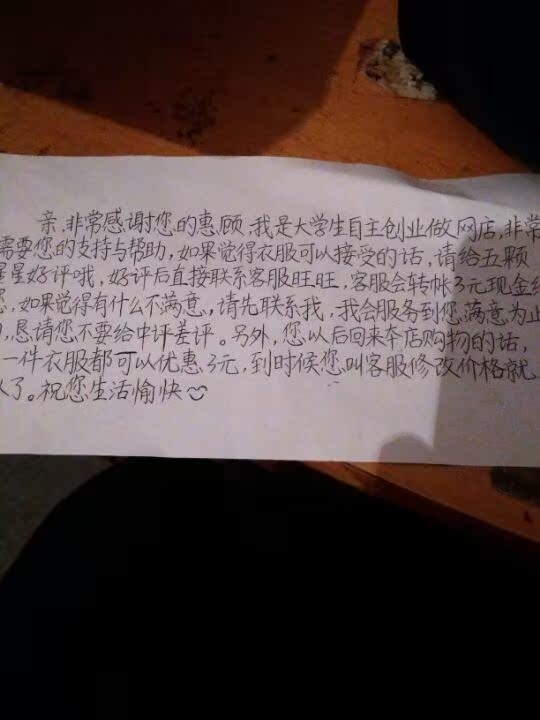 亲,非常感谢您的惠顾,我是大学生自主创业做网店,非常
需要您的支持与帮助,如果觉得衣服可以接受的话,请给五颗
星好评哦,好评后直接联系客服旺旺,客服会转帐3元现金给
您,如果觉得有什么不满意,请先联系我,我会服务到您满意为止
,恳请您不要给中评差评。另外,您以后回来本店购物的话,
一件衣服都可以优惠3元,到时候您叫客服修改价格就
了。祝您生活愉快